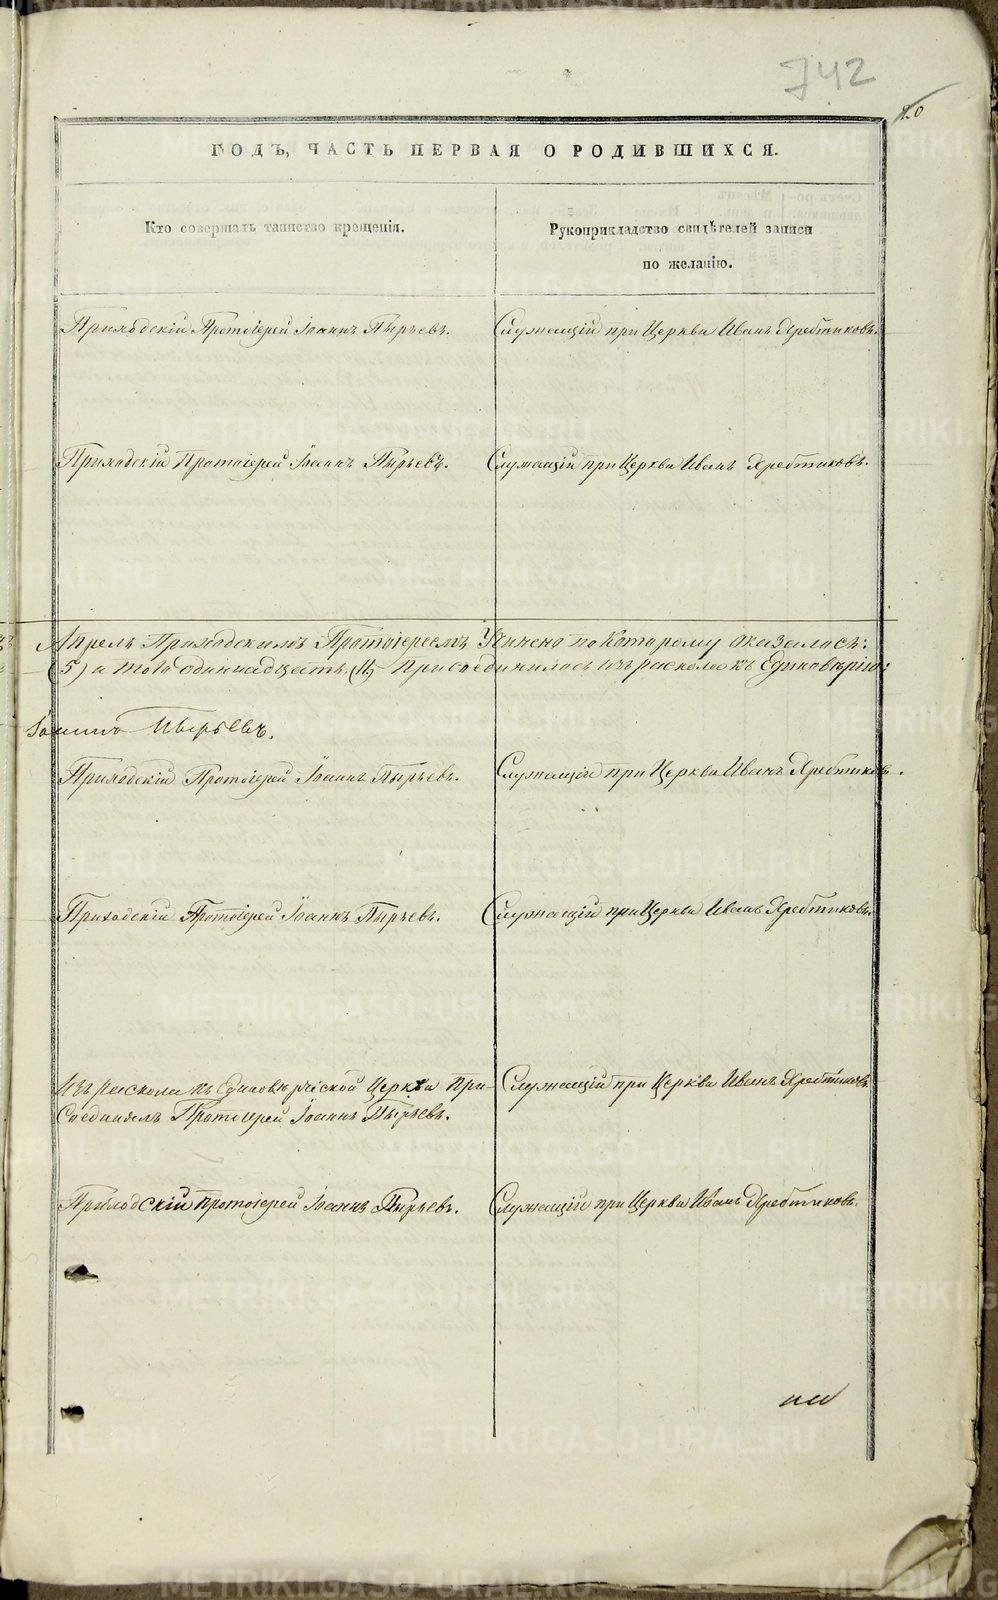 742
20
ГОДЪ, ЧАСТЬ ПЕРВАЯ О РОДИВШИХСЯ.
Кто совершалъ таинство крещенія.
Рукоприкладство свидѣтелей записи
по желанію.
Приходскій Протоіерей Іоаннъ Пырьевъ.
Служащій при Церкви Иванъ Хребтиковъ.
Приходскій Протоіерей Іоаннъ Пырьевъ.
Служащій при Церкви Иванъ Хребтиковъ.
Апрель Приходскимъ Протоіереемъ Учинено по Которому оказалось:
(5) а того одиннадцать (11) Присоединилось изъ раскола къ Единоверію:
Іоаннъ Пырьевъ.
Приходскій Протоіерей Іоаннъ Пырьевъ.
Служащій при Церкви Иванъ Хребтиковъ.
Приходскій Протоіерей Іоаннъ Пырьевъ.
Служащій при Церкви Иванъ Хребтиковъ.
Изъ раскола къ Единовѣрческой Церкви При-
соединялъ Протоіерей Іоаннъ Пырьевъ.
Служащій при Церкви Иванъ Хребтиковъ
Приходскій Протоіерей Іоаннъ Пырьевъ.
Служащій при Церкви Иванъ Хребтиковъ.
METRIKI.GASO-URAL.RU